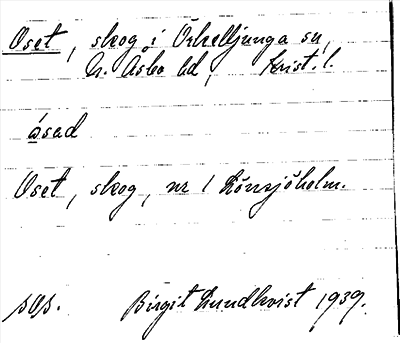 Oset, skog i Örkelljunga sn,
N. Åsbo hd, Krist. l.
åsad
Oset, skog, nr 1 Lönsjöholm.
sos. Birgit Lundkvist 1939.